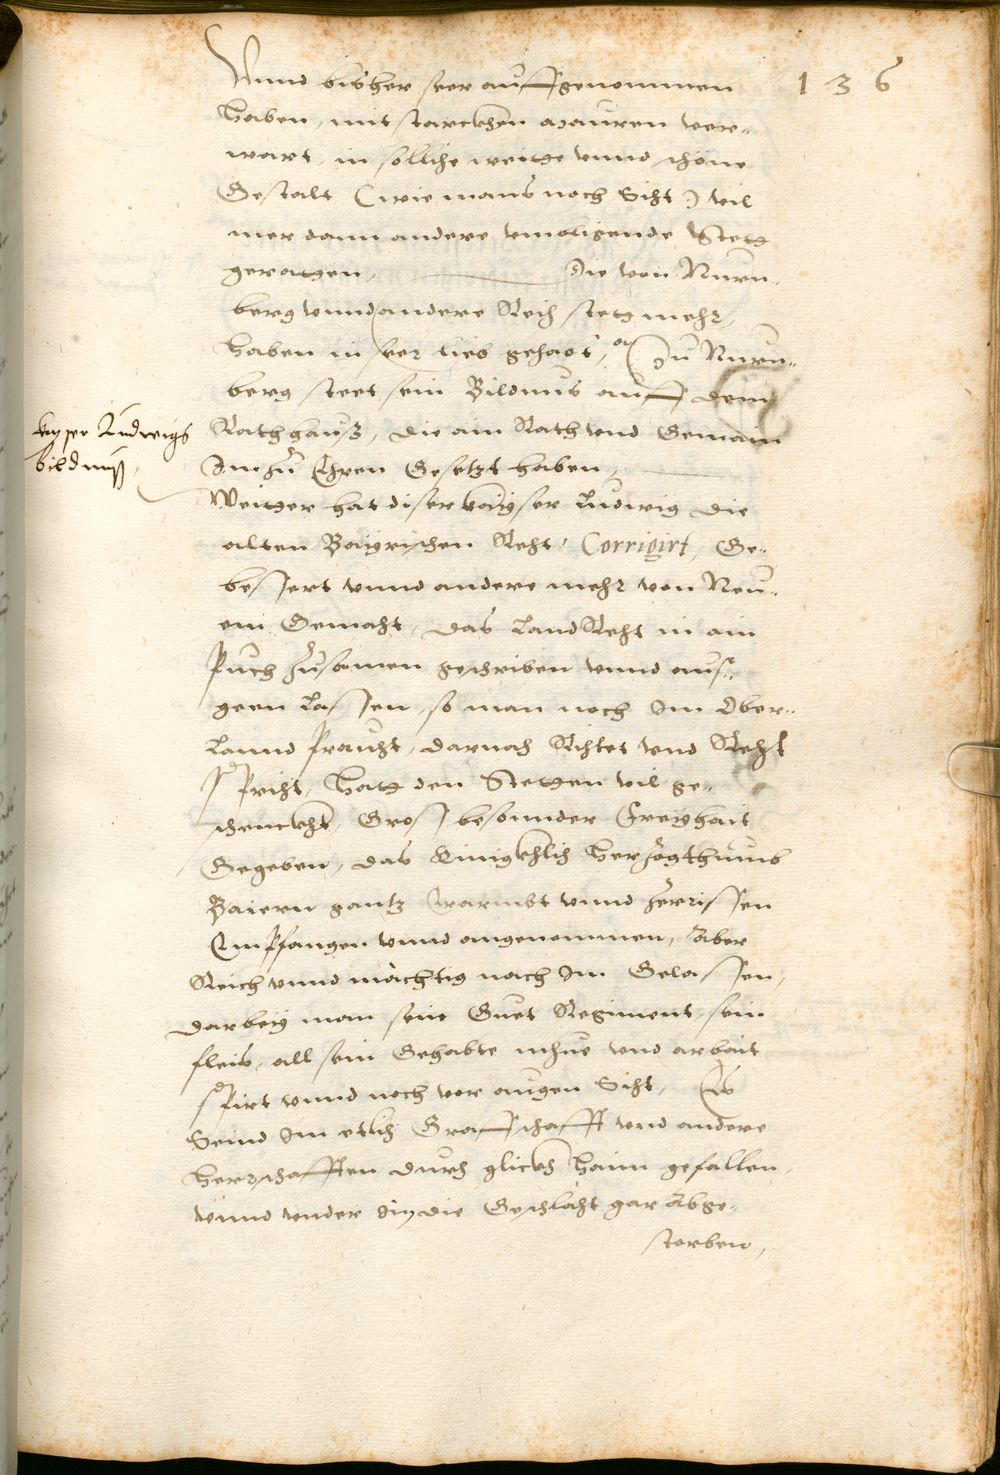 136
Vnnd bisher seer auffgenommen
haben, mit starckhen Mauren ver-
wart, in solliche weitte vnnd schöne
Gestalt (wie mans noch Siht) vil
mer dann andere vmbligende Stett
geratten, Die von Nurn-
berg vnnd andere Reich stett mehr,
haben in seer lieb gehabt, Zu Nurn-
berg steet sein Bildnus auff dem
Rathhauß, die ain Rath vnd Gemain
Im zu Ehren Gesetzt haben,
Kayser Ludwigs
bildnuß,
Weitter hat diser kayser Ludwig die
alten Bayrischen Reht, Corrigirt, Ge-
bessert vnnd andere mehr von Neu-
em Gemacht, das Land Reht in ain
Puech zusamen geschriben vnnd aus-
geen lassen, so man noch Im Ober-
lannd praucht, darnach Richtet vnd Reht
spricht, hatt den Stetten vil ge-
schenckht, Gros besonnder Freyhait
Gegeben, das Hertzogthumb
Baiern gantz Erarmbt vnnd zerrissen
Empfangen vnnd angenommen, Aber
Reich vnnd mächtig nach Im Gelassen,
darbey man seine Guet Regiment, sein
fleis, all sein Gehabte mhüe vnd arbait
spirt vnnd noch vor augen Siht, Es
Seind Im etlich Graffschafft vnd andere
herrschafften durch glickh haim gefallen,
vnnd vnder die Geschlächt gar Abge-
storben,